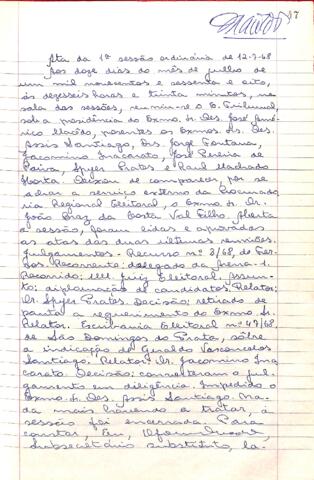 17
Ata da 1ª sessão ordinária de 12-7-68
Aos doze dias do mês de julho de
um mil novecentos e sessenta e oito,
às dezesseis horas e trinta minutos, na
sala das sessões, reuniu-se o E. Tribunal,
sob a presidência do Exmo. Sr. Des. José Amé-
rico Macêdo, presentes os Exmos. Srs. Des.
Assis Santiago, Drs. Jorge Fontana,
Jacomino Inacarato, José Pereira de
Paiva, Spyer Prates e Raul Machado
Horta. Deixou de comparecer, por se
achar a serviço externo da Procurado-
ria Regional Eleitoral, o Exmo. Sr. Dr.
João Braz da Costa Val Filho. Aberta
a sessão, foram lidas e aprovadas
as atas das duas últimas reuniões.
Julgamentos. - Recurso nº 3/68, de Fer-
ros. Recorrente: delegado da Arena. -
Recorrido: MM. Juiz Eleitoral. Assun-
to: diplomação de candidatos. Relator:
Dr. Spyer Prates. Decisão: retirado de
pauta a requerimento do Exmo. Sr.
Relator. Escrivania Eleitoral nº 49/68,
de São Domingos do Prata, sôbre
a indicação de Geraldo Vasconcelos
Santiago. Relator: Dr. Jacomino Ina-
carato. Decisão: converteram o jul-
gamento em diligência. Impedido o
Exmo. Sr. Des. Assis Santiago. Na-
da mais havendo a tratar, a
sessão foi encerrada. Para
constar, Eu,
subsecretário substituto, la-